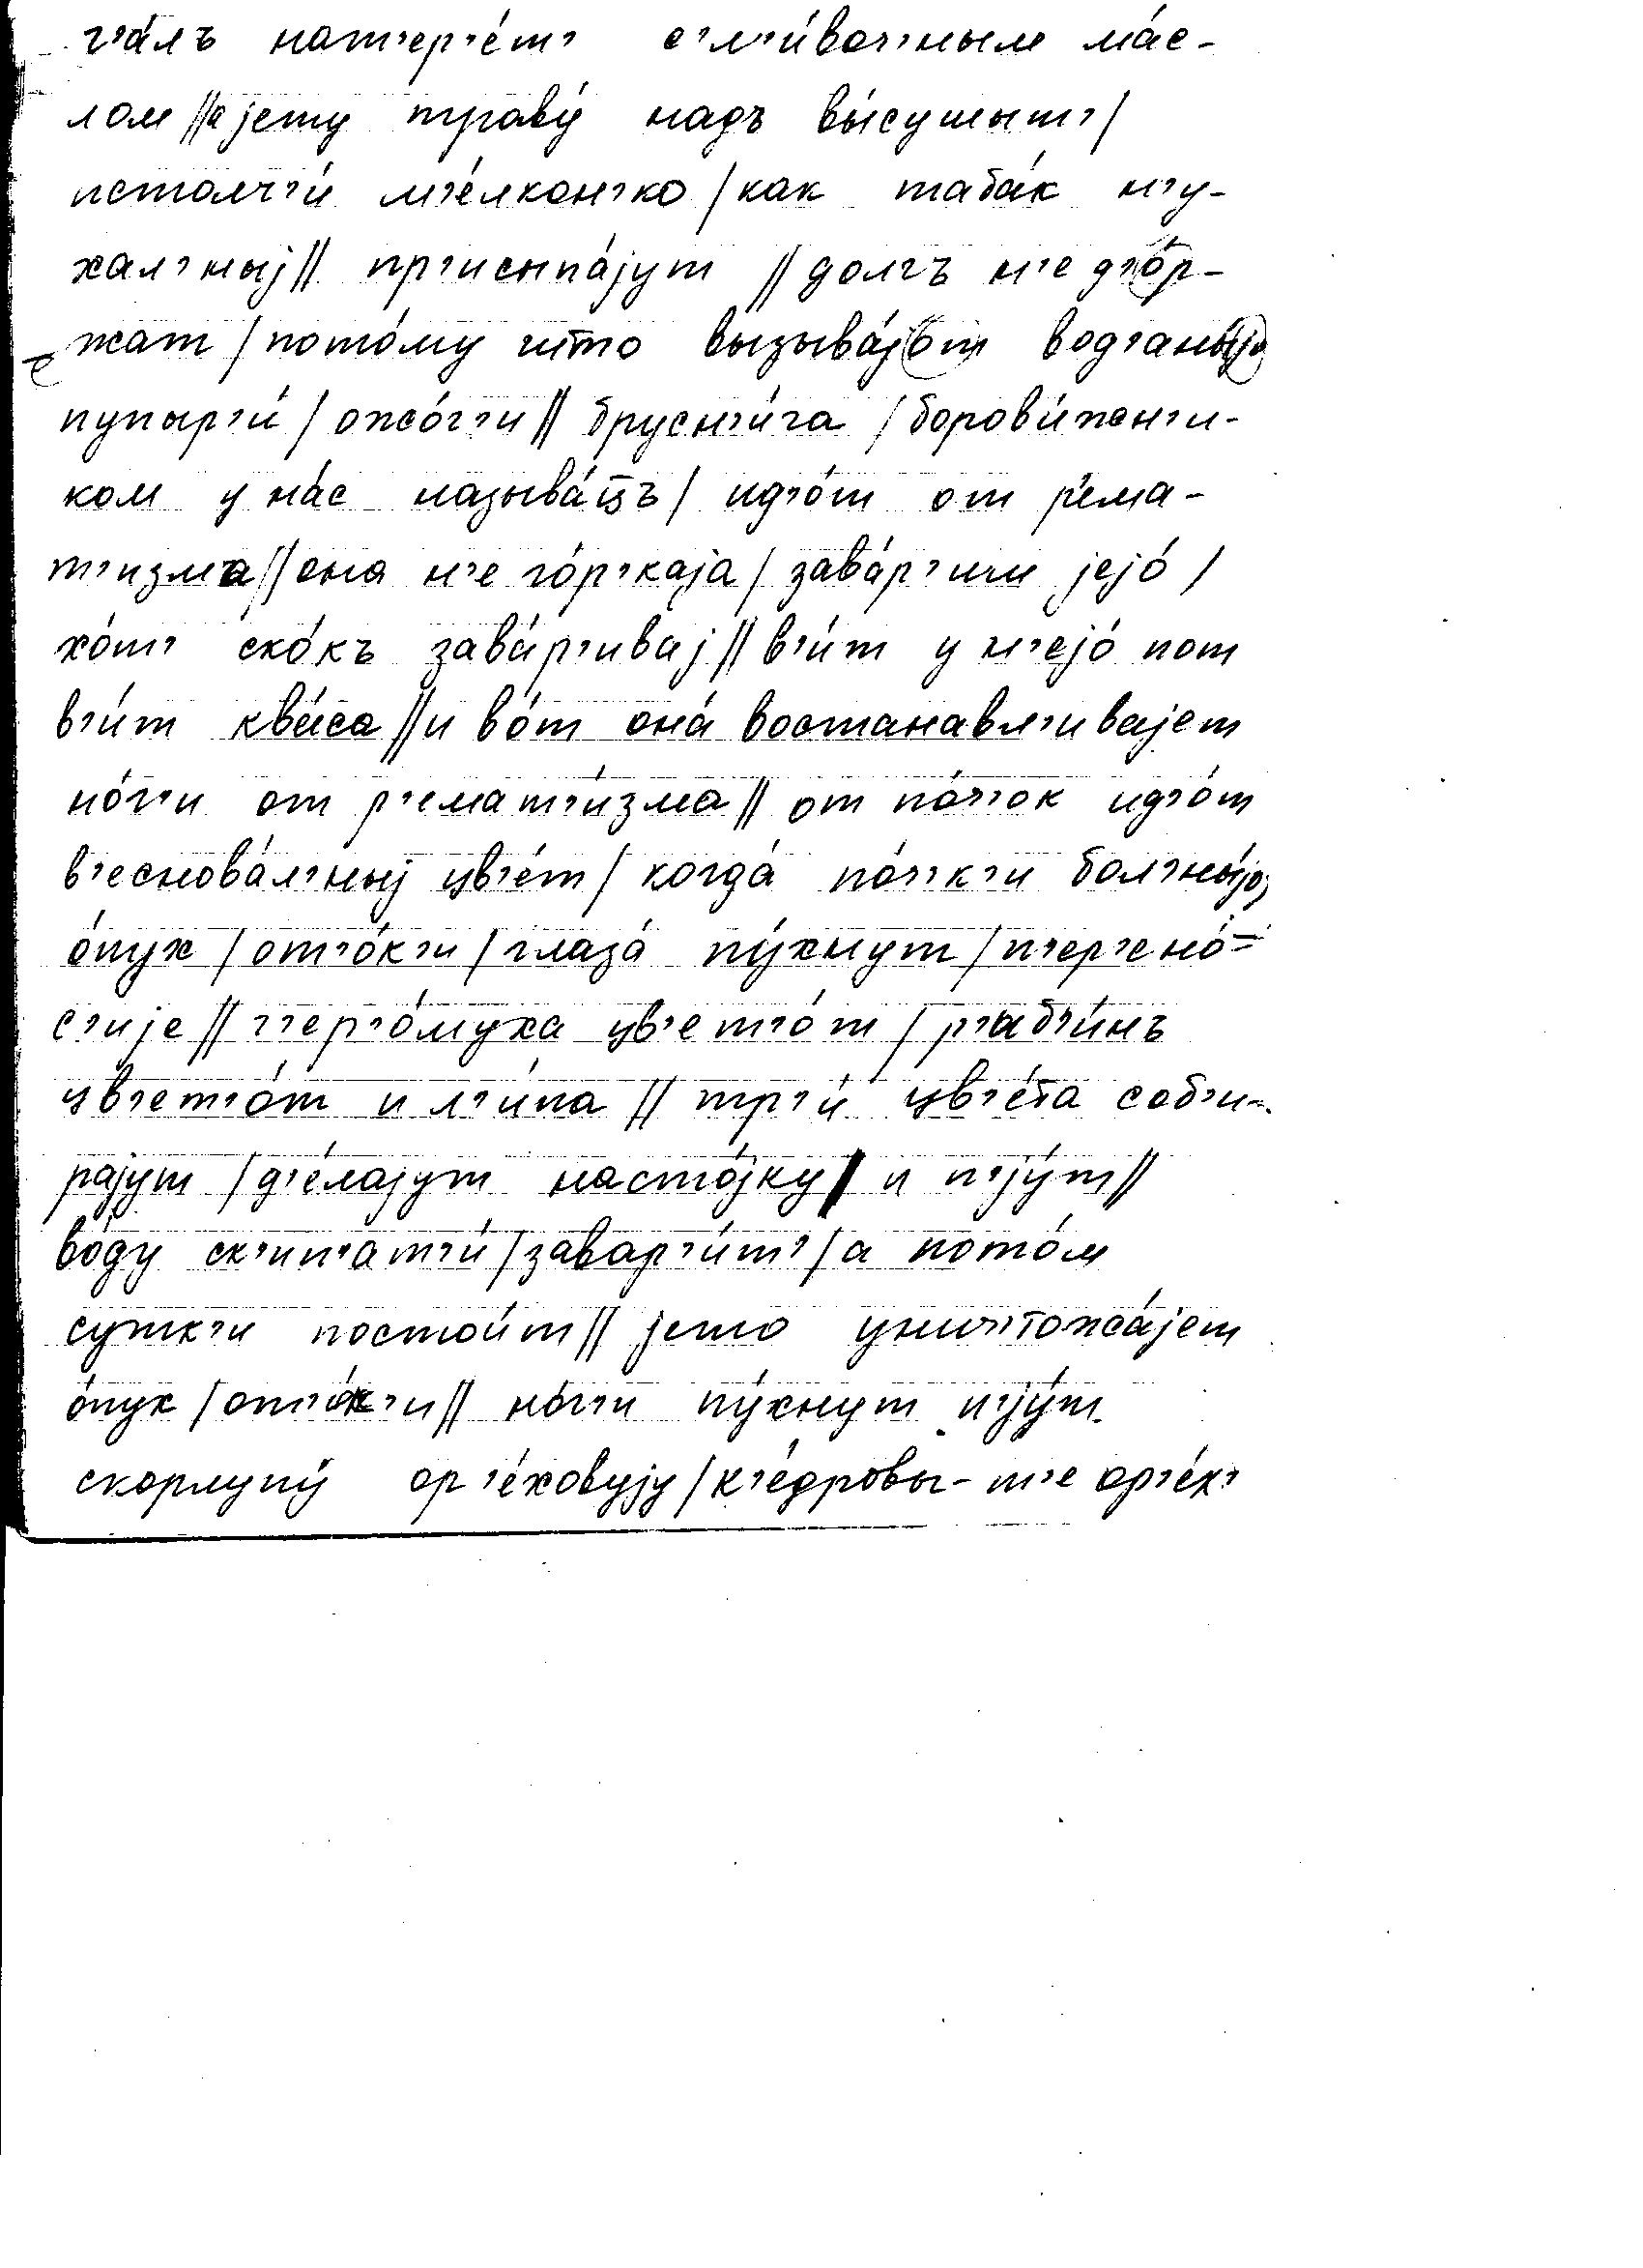 г'а́лъ нат'ер'е́т' с'л'и́воч'ным ма́с-
лом // а јету траву́ надъ вы́сушыт' /
истолч'и́ м'е́лкон'ко / как таба́к н'у-
хал'ныј // пр'исыпа́јут // долгъ н'е д'о́р-
жат / пото́му што вызыва́јот вод'аны́јо
пупыр'и́ / ожо́г'и // брусн'и́га / борови́жн'и-
ком у на́с называ́т̅ц̅ъ / ид'о́т от р'ема-
т'изма // она н'е го́р'каја / зава́р'иш јејо́ /
хо́т' ско́къ зава́р'ивај // в'и́т у н'ејо́ пот
в'и́т ква́са // и во́т она́ востанавл'ивајет
но́г'и от р'емат'и́зма // от по́ч'ок ид'о́т
в'еснова́л'ныј цв'е́т / когда́ по́ч'к'и бол'ны́јо,
о́пух / от'о́к'и / глаза́ пу́хнут / п'ер'ено́-
с'ије // ч'ер'о́муха цв'ет'о́т / р'аб'и́нъ
цв'ет'о́т и л'и́па // тр'и́ цв'е́та соб'и-
рајут / д'е́лајут насто́јку / и п'ју́т //
во́ду ск'ип'ат'и́ / завар'и́т' / а пото́м
сутк'и постои́т // јето унич'тожа́јет
о́пух / от'о́к'и // но́г'и пу́хнут п'ју́т
скорлупу́ ор'е́ховују / к'е́дровы-т'е ор'е́х'